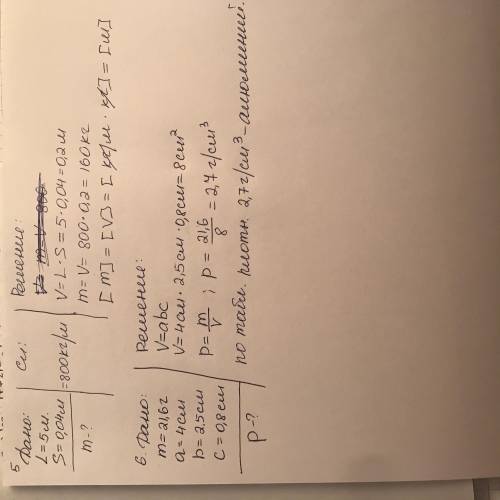 5
Дано:
L=5м.
S=0,04м
m-?
Си:
=800кг/м
Решение:
V= m=V=800
V=L·S=5·0,04=0,2м
m=V=800·0,2=160кг
[m]=[V]=[кг/м·кг]=[м]
6. Дано:
m=21,6г
a=4см
b=2,5см
c=0,8см
P-?
Решение:
V=abc
V=4см·2,5см·0,8см=8см²
P=m/V; P=21,6/8=2,7г/см³
по табл. плотн. 2,7г/см³-алюминий.